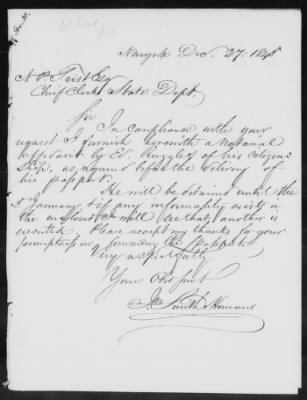 New york Dec. 27. 1845
N P Trist Esq
Chief Clerk State Dept
Sir
In compliance with your
request I furnish herewith a notarial
affidavit by Ed. of his citizen-
ship, as required before the delivery of
his Passport.
He will be detained until the
January, & if any informality exists in
the enclosed I will see that another is
executed. Please accept my thanks for your
promptness in forwarding the Passports
Very respectfully
Your Obt Servt
J. Smith Homans